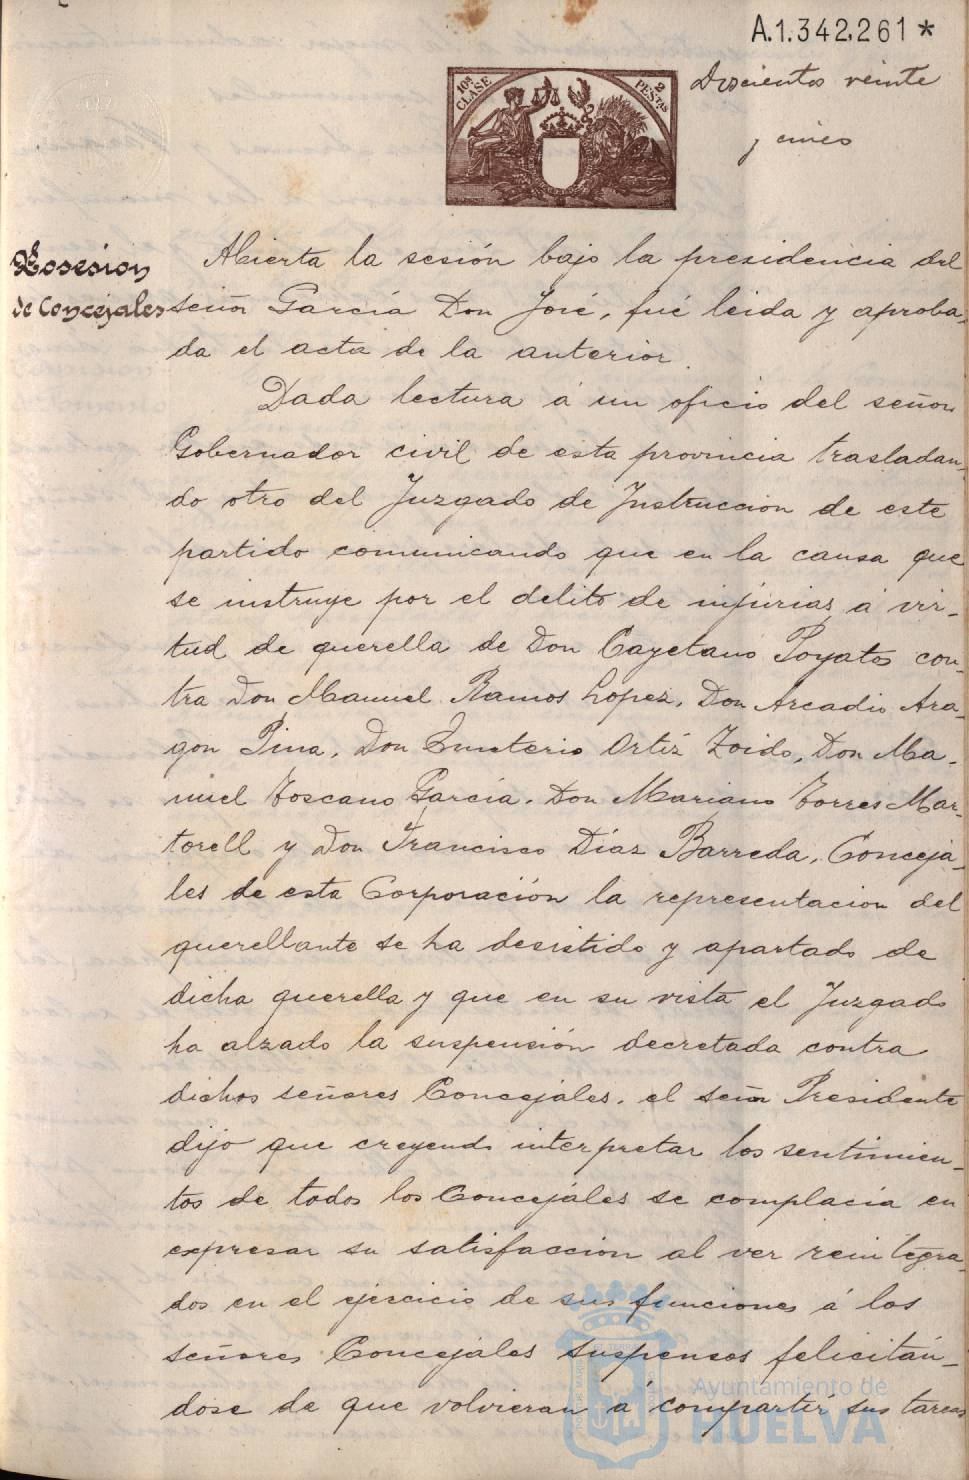 A.1.342.261 *
10ª CLASE
2 PESTAS
Doscientos veinte
y cinco
Posesión
de Concejales
Abierta la sesión bajo la presidencia del
señor García Don José, fué leida y aproba-
da el acta de la anterior.
Dada lectura á un oficio del señor
Gobernador civil de esta provincia trasladan-
do otro del Juzgado de Instrucción de este
partido comunicando que en la causa que
se instruye por el delito de injurias á vir-
tud de querella de Don Cayetano Poyatos con-
tra Don Manuel Ramos López, Don Arcadio Ara-
gon Pina, Don Emeterio Ortíz Zoido, Don Ma-
nuel Toscano García, Don Mariano Torres Mar-
torell y Don Francisco Díaz Barreda, Conceja-
les de esta Corporación la representacion del
querellante se ha desistido y apartado de
dicha querella y que en su vista el Juzgado
ha alzado la suspensión decretada contra
dichos señores Concejales, el señor Presidente
dijo que creyendo interpretar los sentimien-
tos de todos los Concejales se complacía en
expresar su satisfaccion al ver reintegra-
dos en el ejercicio de sus funciones á los
señores Concejales suspensos felicitán-
dose de que volvieran á compartir sus tareas
Ayuntamiento de
HUELVA